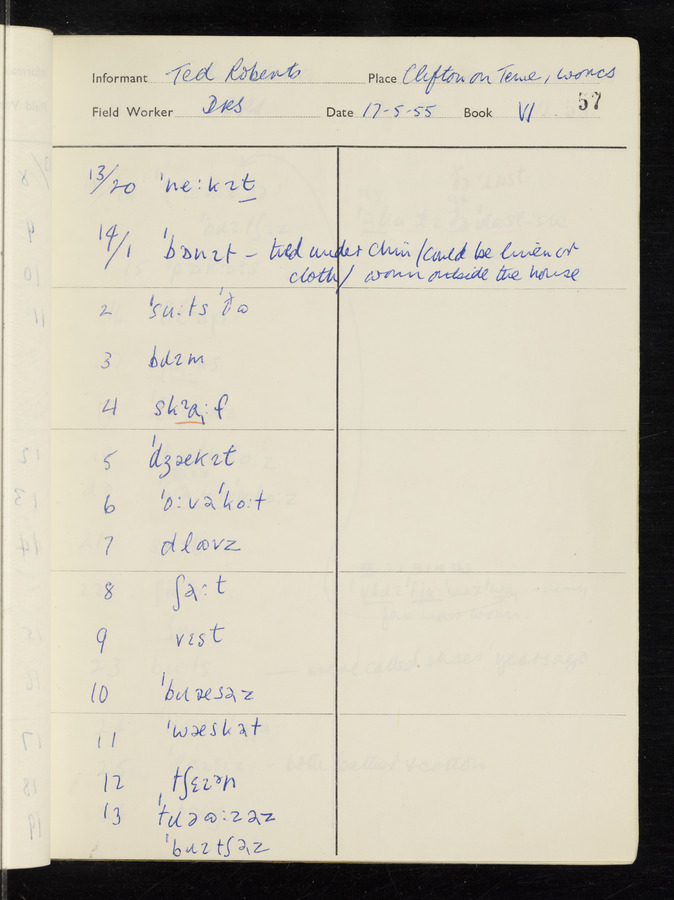 Informant Ted Roberts Place Clifton on Teme, Worcs
Field Worker DRS Date 17-5-55 Book VI 57
13/20 'ne:kɪt
14/1 'bɒnɪt – tied under chin / could be linen or
cloth / worn outside the house
2 'su:ts
3 bɹɪm
4 skɹa:f
5 'dʒækɪt
6 'o:və'ko:t
7 glʊvz
8 ʃə:t
9 vɛst
10 'bɹæsəz
11 'wæskət
12 tʃɛɪən
13 'tɹəʊ:zəz
'bɹɪtʃəz